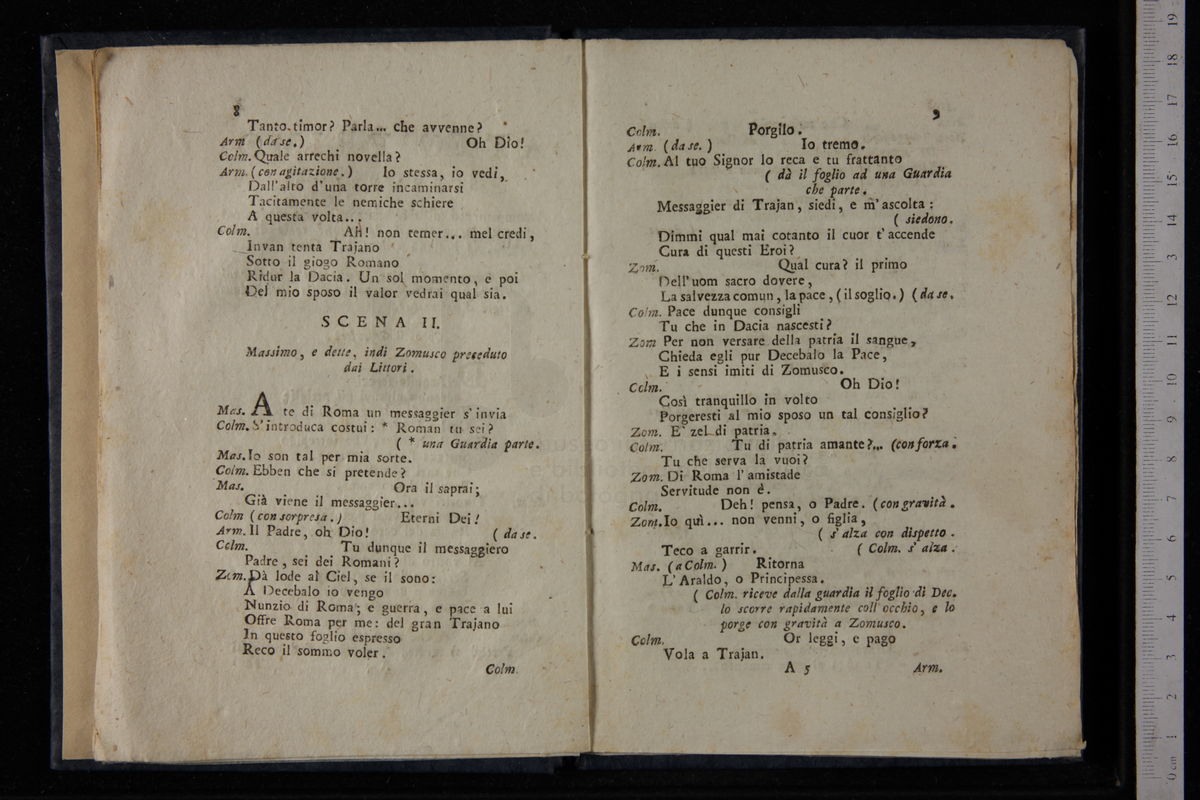 8
Tanto timor? Parla... che avvenne?
Arm (da se.) Oh Dio!
Colm. Quale arrechi novella?
Arm. (con agitazione.) Io stessa, io vedi,
Dall'alto d'una torre incaminarsi
Tacitamente le nemiche schiere
A questa volta...
Colm. Ah! non temer... mel credi,
Invan tenta Trajano
Sotto il giogo Romano
Ridur la Dacia. Un sol momento, e poi
Del mio sposo il valor vedrai qual sia.
SCENA II.
Massimo, e dette, indi Zomusco preceduto
dai Littori.
Mas. A te di Roma un messaggier s'invia
Colm. S'introduca costui: * Roman tu sei?
( * una Guardia parte.
Mas. Io son tal per mia sorte.
Colm. Ebben che si pretende?
Mas. Ora il saprai;
Già viene il messaggier...
Colm (con sorpresa.) Eterni Dei!
Arm. Il Padre, oh Dio! (da se.
Colm. Tu dunque il messaggiero
Padre, sei dei Romani?
Zom. Dà lode al Ciel, se il sono:
A Decebalo io vengo
Nunzio di Roma; e guerra, e pace a lui
Offre Roma per me: del gran Trajano
In questo foglio espresso
Reco il sommo voler.
Colm.
9
Colm. Porgilo.
Arm. (da se.) Io tremo.
Colm. Al tuo Signor lo reca e tu frattanto
( dà il foglio ad una Guardia
che parte.
Messaggier di Trajan, siedi, e m'ascolta:
( siedono.
Dimmi qual mai cotanto il cuor t'accende
Cura di questi Eroi?
Zom. Qual cura? il primo
Dell'uom sacro dovere,
La salvezza comun, la pace, (il soglio.) (da se.
Colm. Pace dunque consigli
Tu che in Dacia nascesti?
Zom Per non versare della patria il sangue,
Chieda egli pur Decebalo la Pace,
E i sensi imiti di Zomusco.
Colm. Oh Dio!
Così tranquillo in volto
Porgeresti al mio sposo un tal consiglio?
Zom. E' zel di patria.
Colm. Tu di patria amante?... (con forza.
Tu che serva la vuoi?
Zom. Di Roma l'amistade
Servitude non è.
Colm. Deh! pensa, o Padre. (con gravità.
Zom. Io quì... non venni, o figlia,
( s'alza con dispetto.
Teco a garrir. ( Colm. s'alza.
Mas. (a Colm.) Ritorna
L'Araldo, o Principessa.
( Colm. riceve dalla guardia il foglio di Dec.
lo scorre rapidamente coll'occhio, e lo
porge con gravità a Zomusco.
Colm. Or leggi, e pago
Vola a Trajan.
A 5 Arm.
0 cm 1 2 3 4 5 6 7 8 9 10 11 12 13 14 15 16 17 18 19